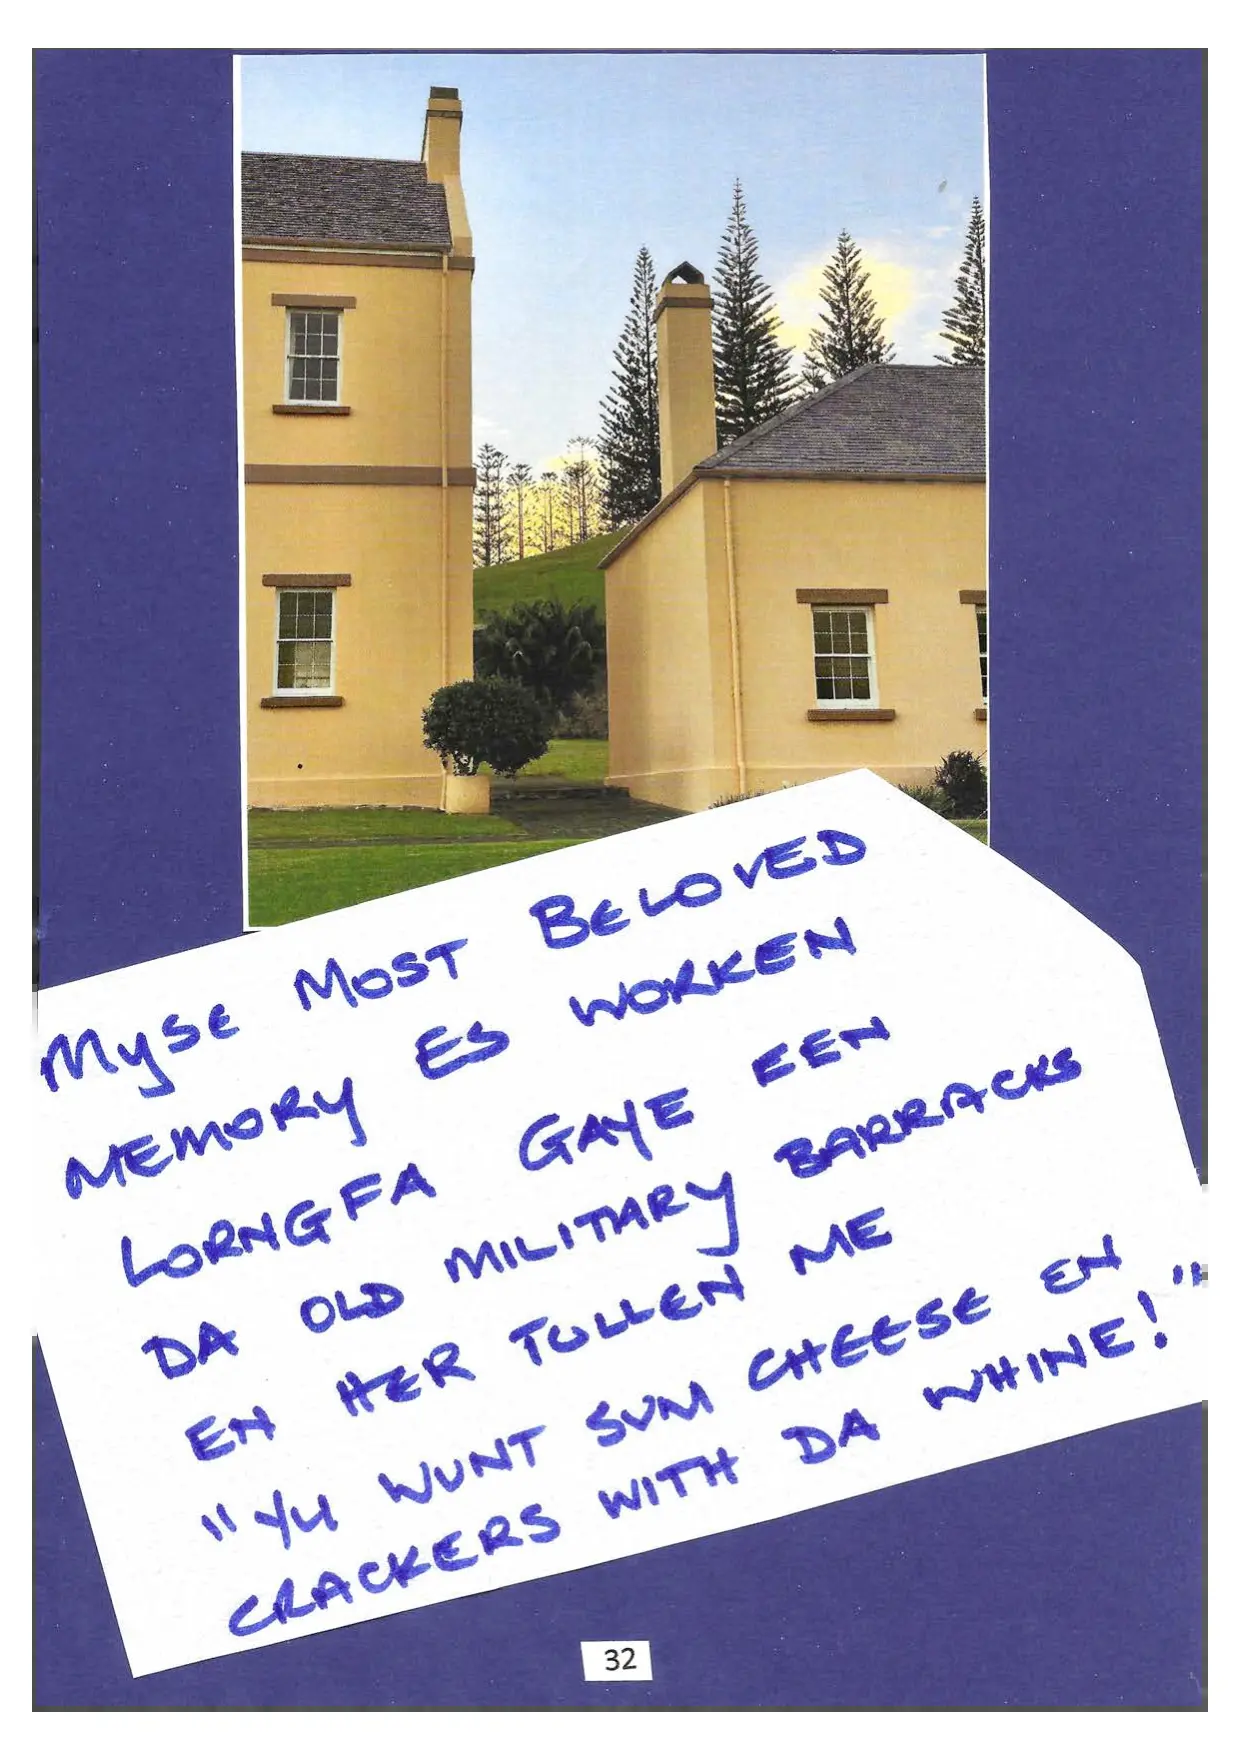 Myse Most Beloved
memory es worken
lorngfa Gaye een
da old military barracks
en her tullen me
"Yu wunt sum cheese en
crackers with da whine!"
32